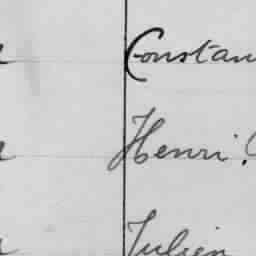 Constan
Henri.
Julien